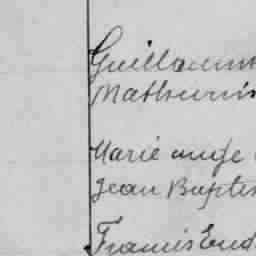 Guillaum
Mathurin
Marie ange
Jean Baptis
Francis Eud